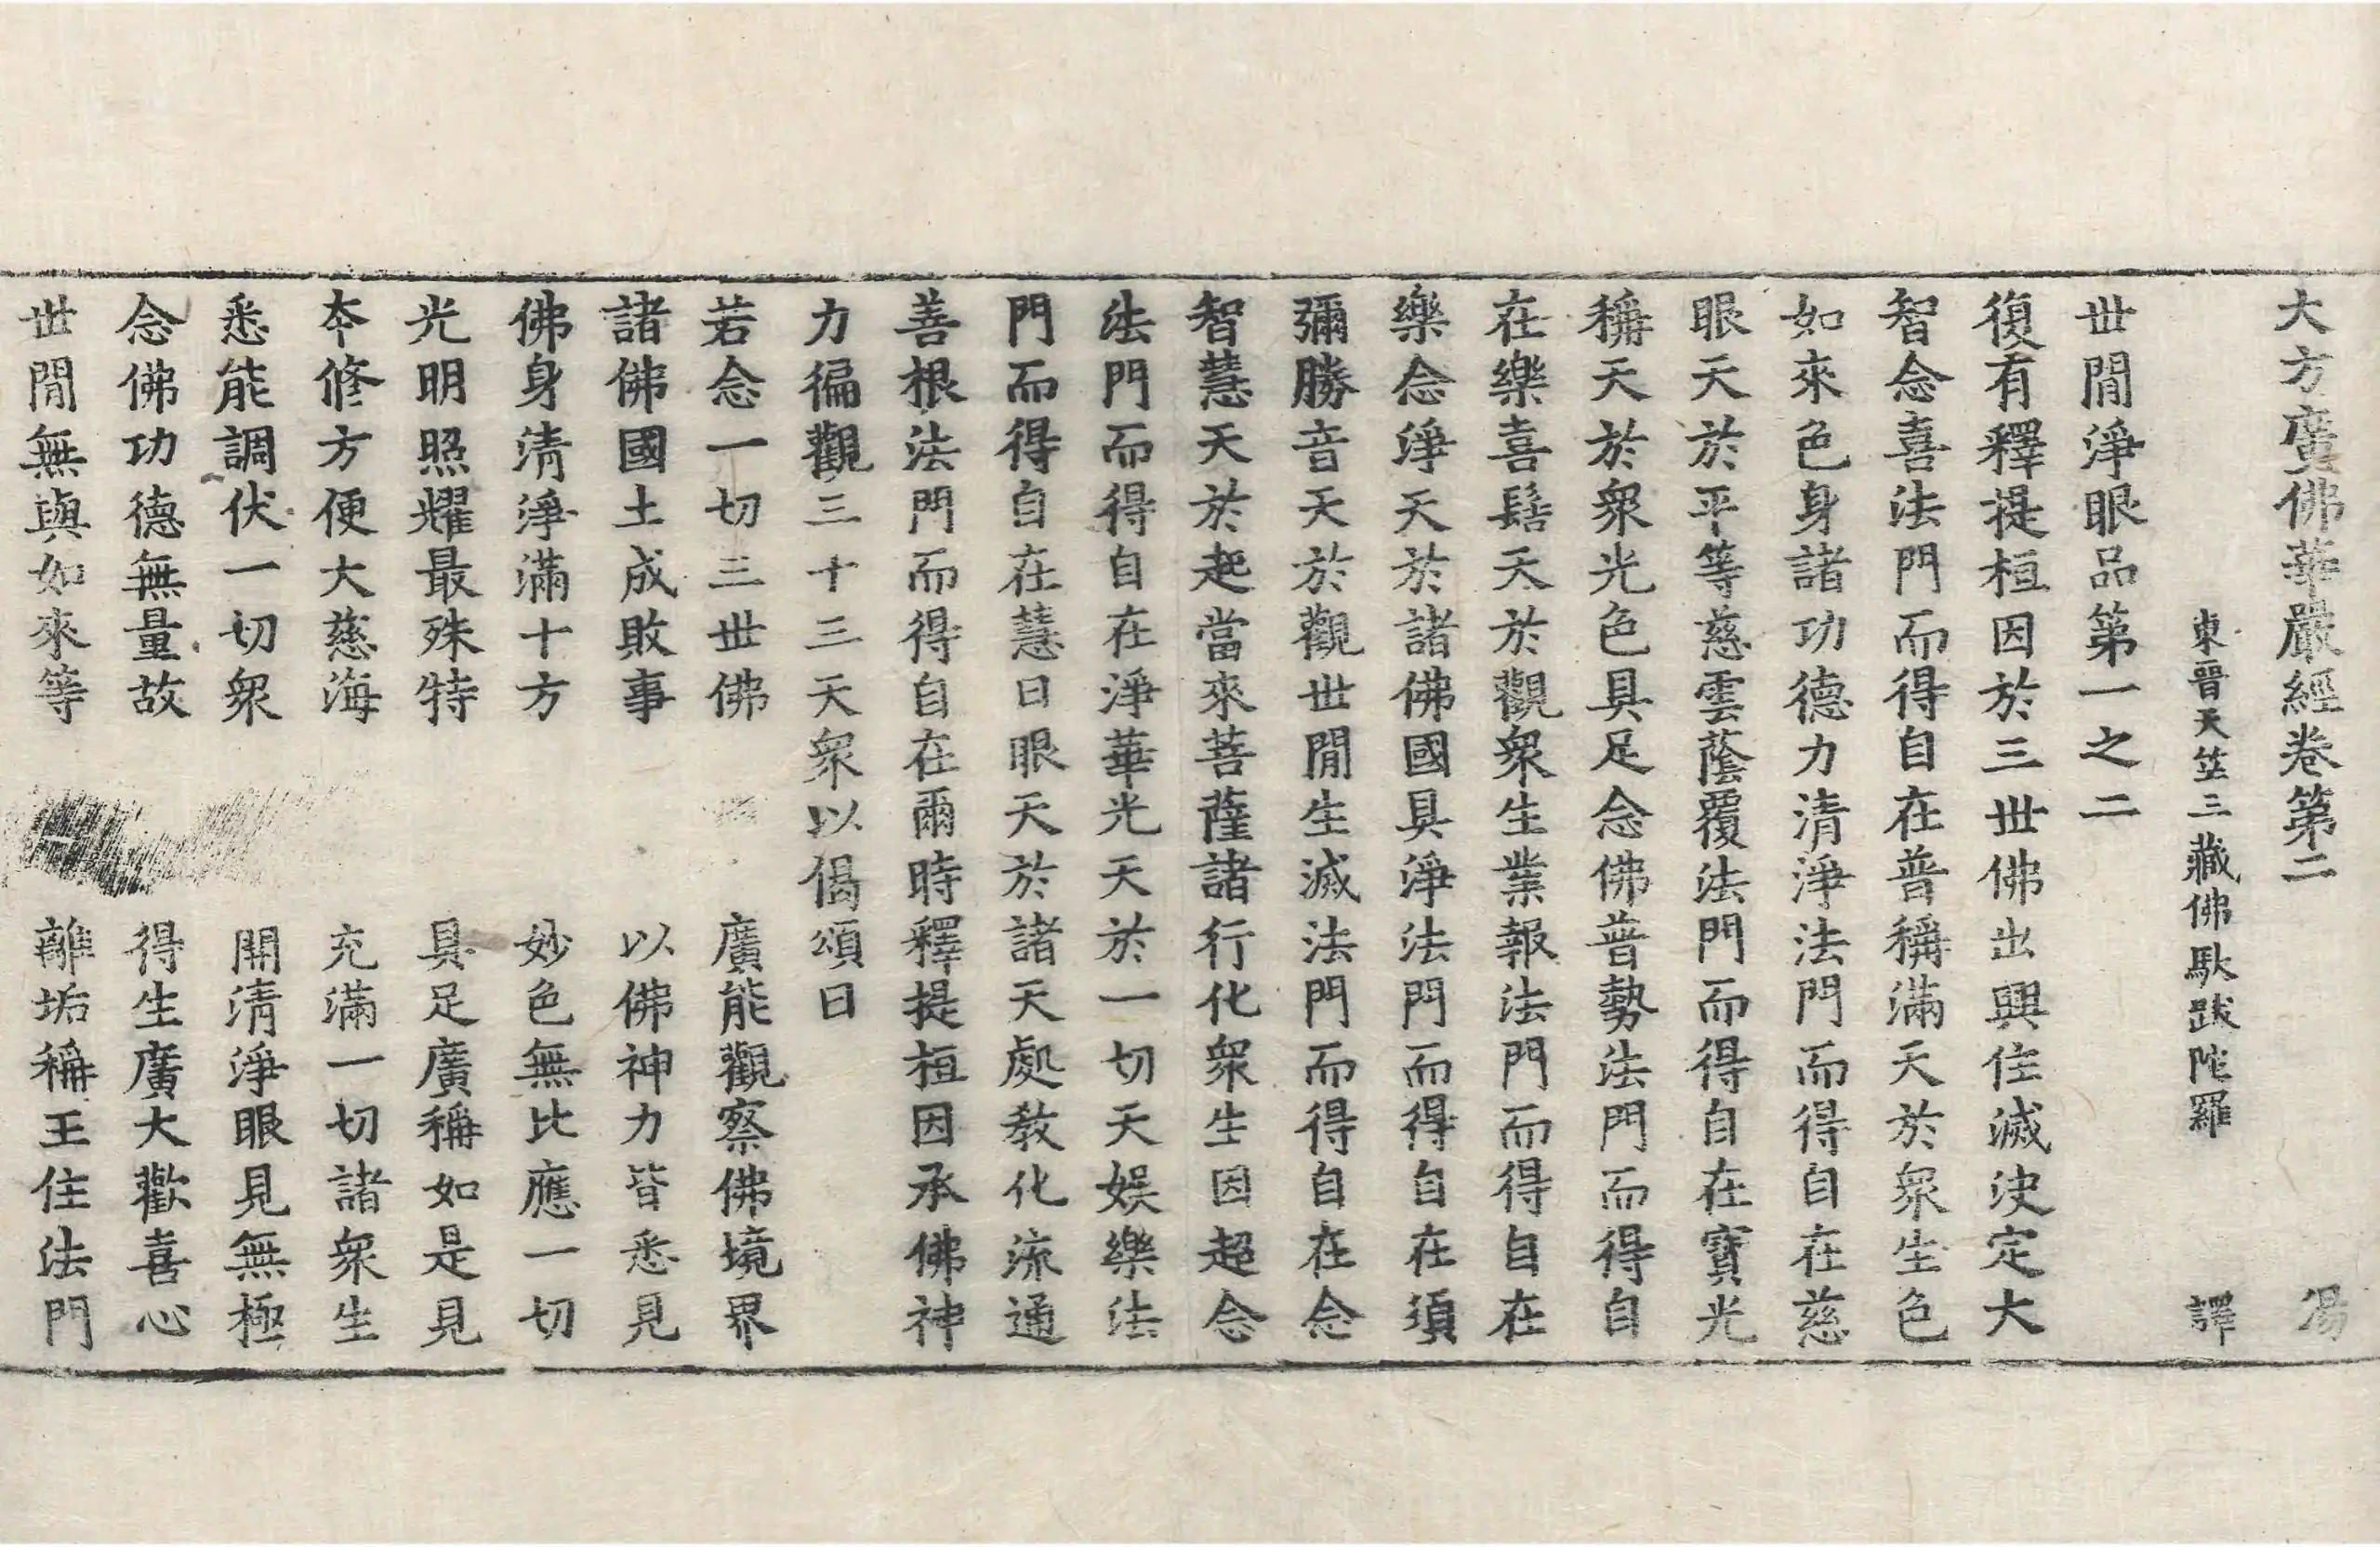 大方廣佛華嚴經卷第二 湯
東晉天竺三藏佛馱跋陀羅 譯
世閒淨眼品第一之二
復有釋提桓因於三世佛出興住滅決定大
智念喜法門而得自在普稱滿天於衆生色
如來色身諸功德力清淨法門而得自在慈
眼天於平等慈雲蔭覆法門而得自在寶光
稱天於衆光色具足念佛普勢法門而得自
在樂喜髻天於觀衆生業報法門而得自在
樂念淨天於諸佛國具淨法門而得自在須
彌勝音天於觀世閒生滅法門而得自在念
智慧天於起當來菩薩諸行化衆生因超念
法門而得自在淨華光天於一切天娛樂法
門而得自在慧日眼天於諸天處教化流通
善根法門而得自在爾時釋提桓因承佛神
力徧觀三十三天衆以偈頌曰
若念一切三世佛 廣能觀察佛境界
諸佛國土成敗事 以佛神力皆悉見
佛身清淨滿十方 妙色無比應一切
光明照耀最殊特 具足廣稱如是見
本修方便大慈海 充滿一切諸衆生
悉能調伏一切衆 開清淨眼見無極
念佛功德無量故 得生廣大歡喜心
世閒無與如來等 離垢稱王住法門